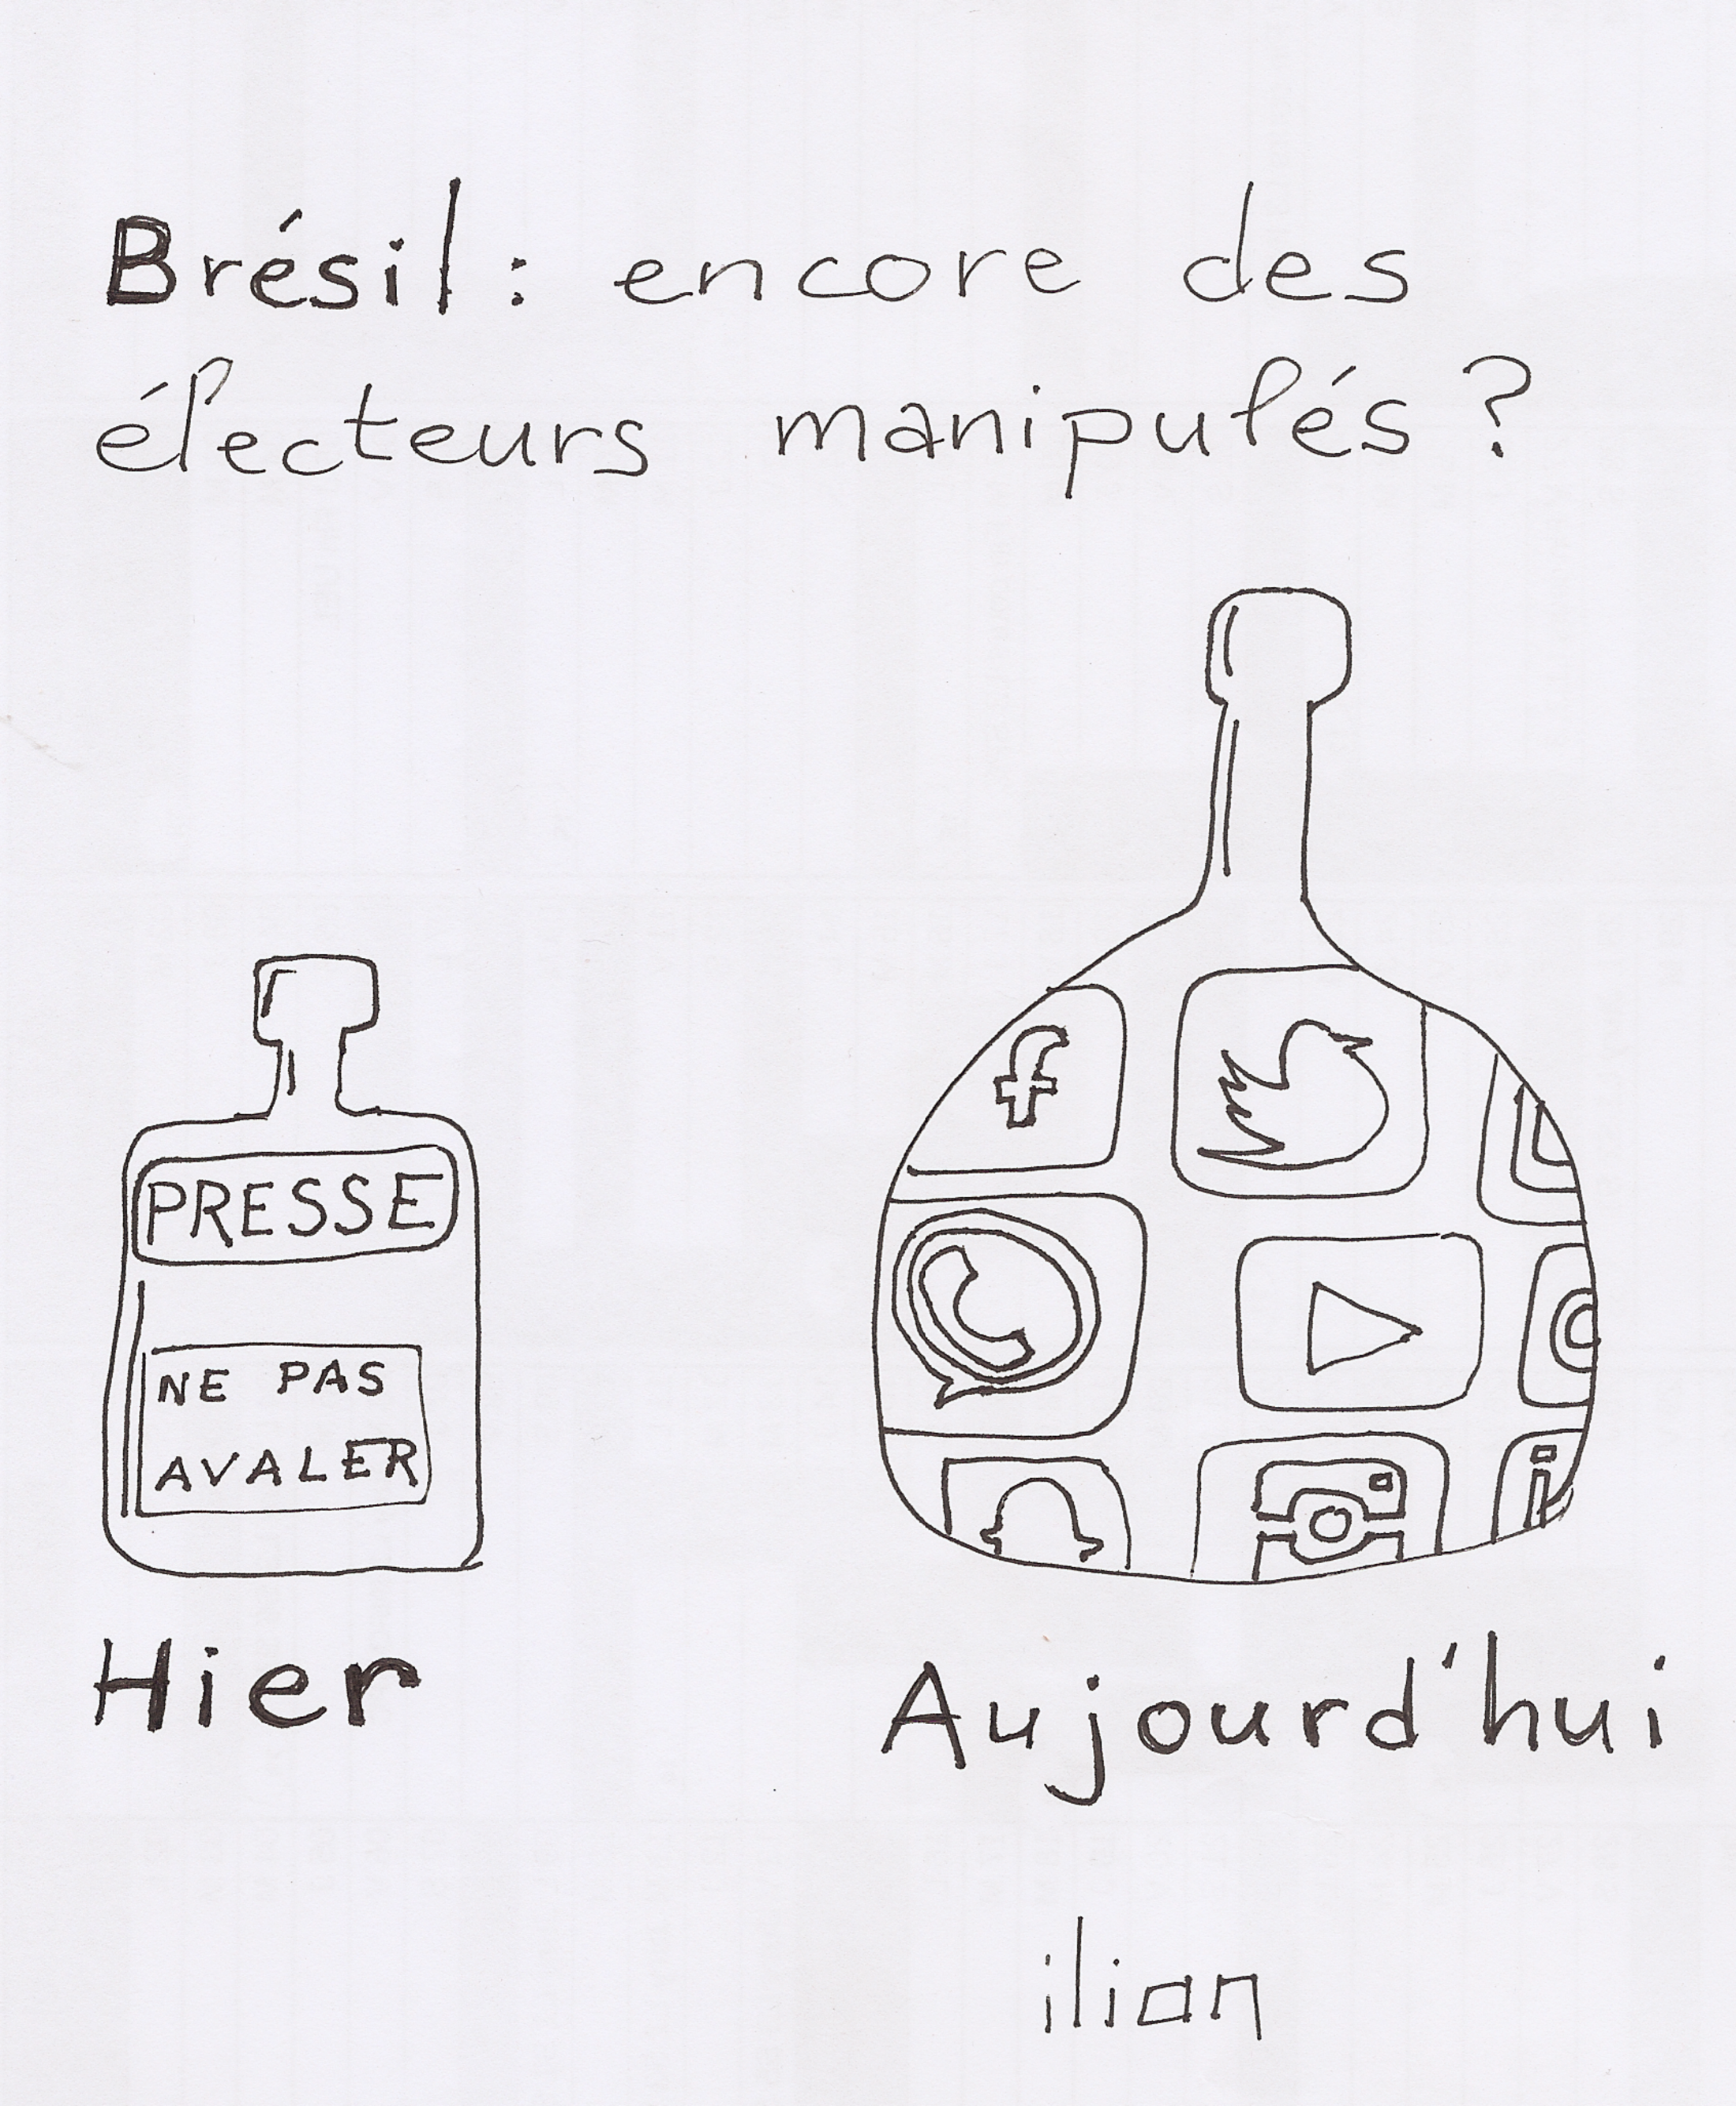 Brésil: encore des
électeurs manipulés?
PRESSE
NE PAS
AVALER
Hier
Aujourd'hui
ilian